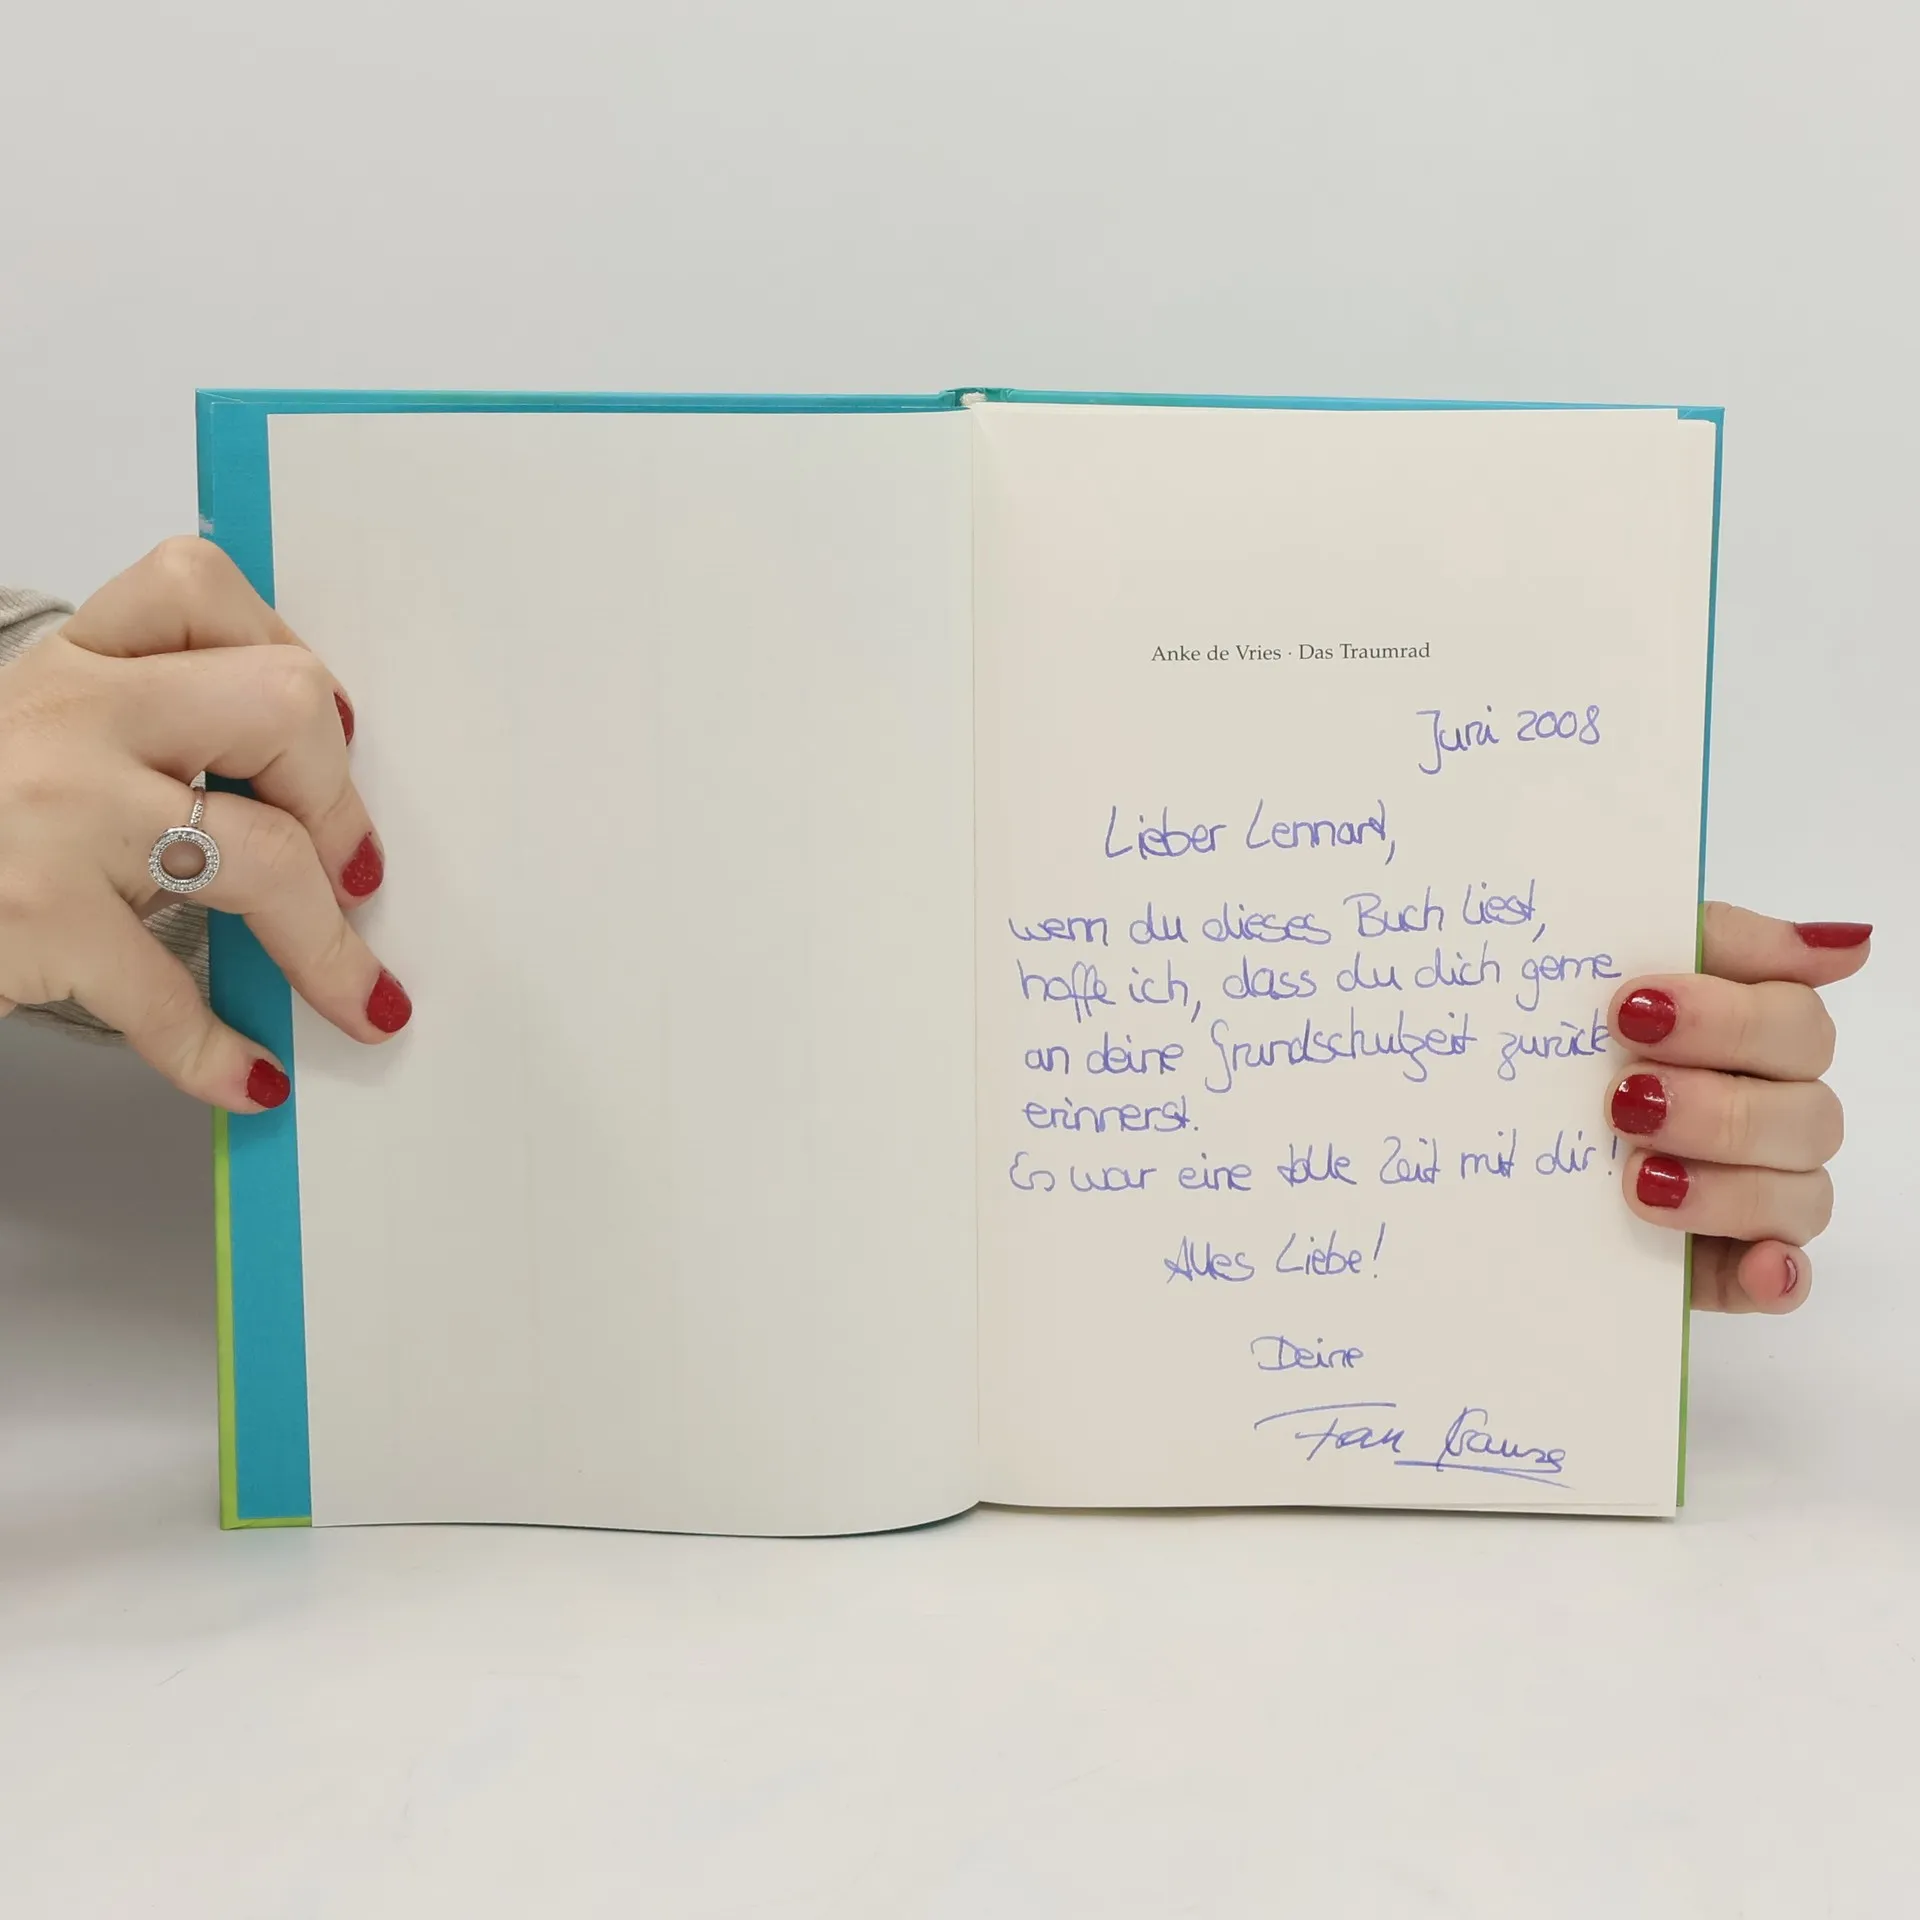 Anke de Vries · Das Traumrad
Juni 2008
Lieber Lennart,
wenn du dieses Buch liest,
hoffe ich, dass du dich gerne
an deine Grundschulzeit zurück
erinnerst.
Es war eine tolle Zeit mit dir!
Alles Liebe!
Deine
Frau Krause